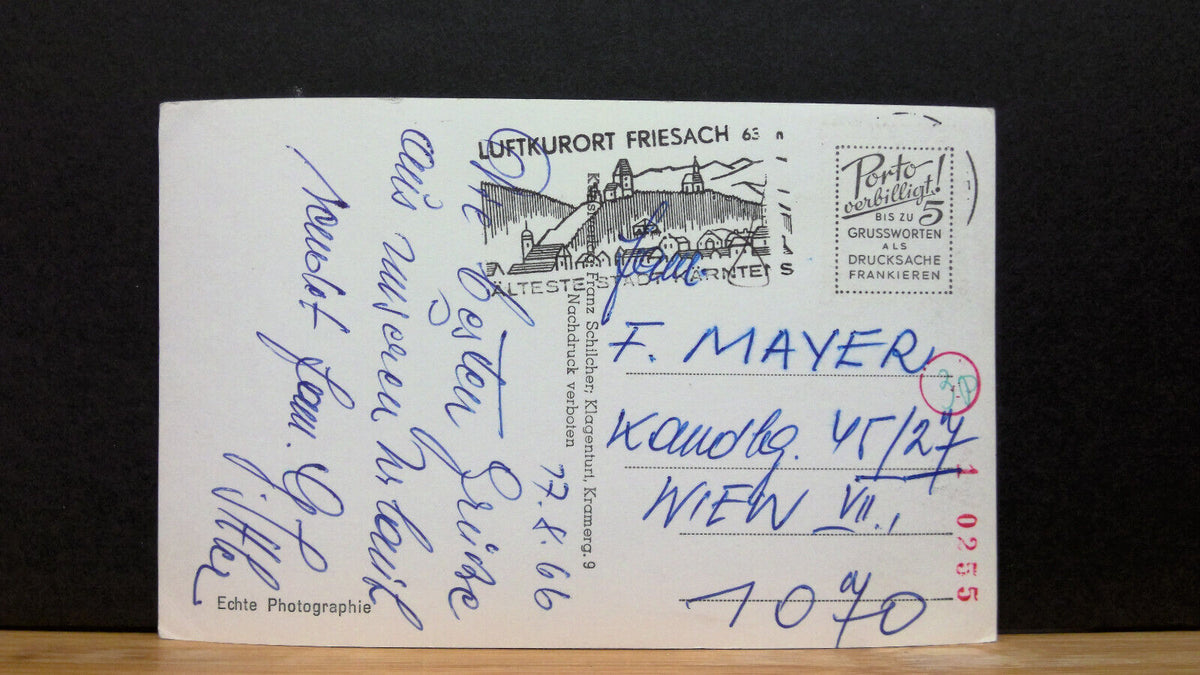 LUFTKURORT FRIESACH 63
ÄLTESTE STADT KÄRNTENS
Porto
verbilligt!
BIS ZU 5
GRUSSWORTEN
ALS
DRUCKSACHE
FRANKIEREN
Fam.
F. MAYER
Kandlg. 45/27
WIEN VII.,
1070
1 0255
Franz Schilcher, Klagenfurt, Kramerg. 9
Nachdruck verboten
17.8.66
Die besten Grüße
aus unseren Urlaub
sendet Fam.
Echte Photographie